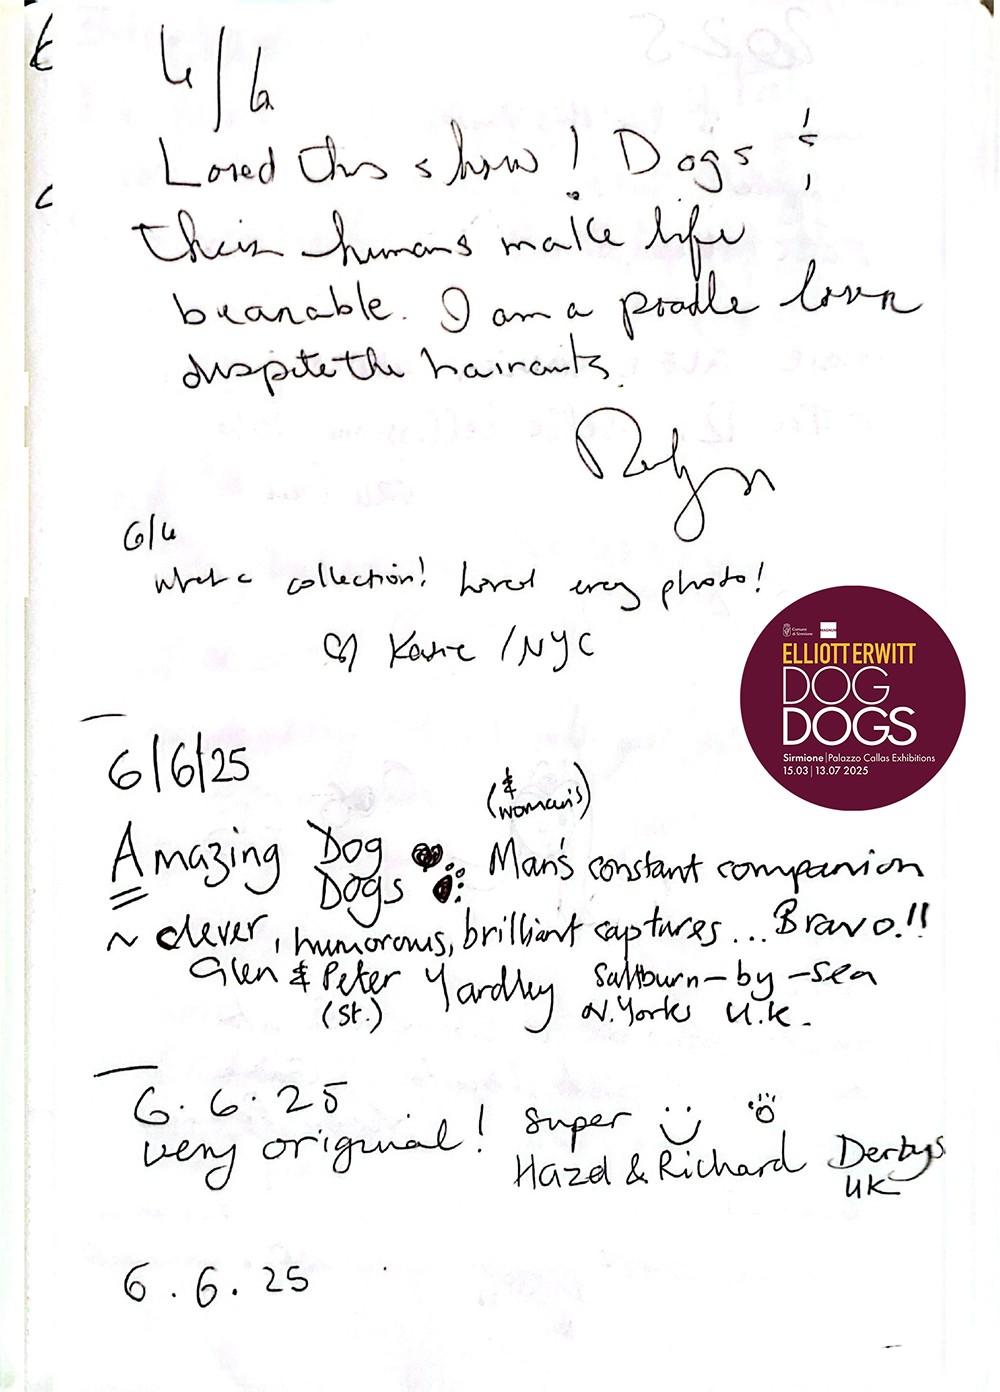 6/6
Loved this show! Dogs &
their humans make life
bearable. I am a poodle lover
despite the haircuts.
6/6
What a collection! Loved every photo!
Katie / NYC
Comune
di Sirmione
MAGNUM
ELLIOTT ERWITT
DOG
DOGS
Sirmione | Palazzo Callas Exhibitions
15.03 | 13.07 2025
6/6/25
(& woman's)
Amazing Dog Dogs Man's constant companion
~ clever, humorous, brilliant captures... Bravo!!
Glen & Peter Yardley Saltburn-by-sea
(St.) N. Yorks U.K.
6.6.25
very original! super
Hazel & Richard Derbys
UK
6.6.25